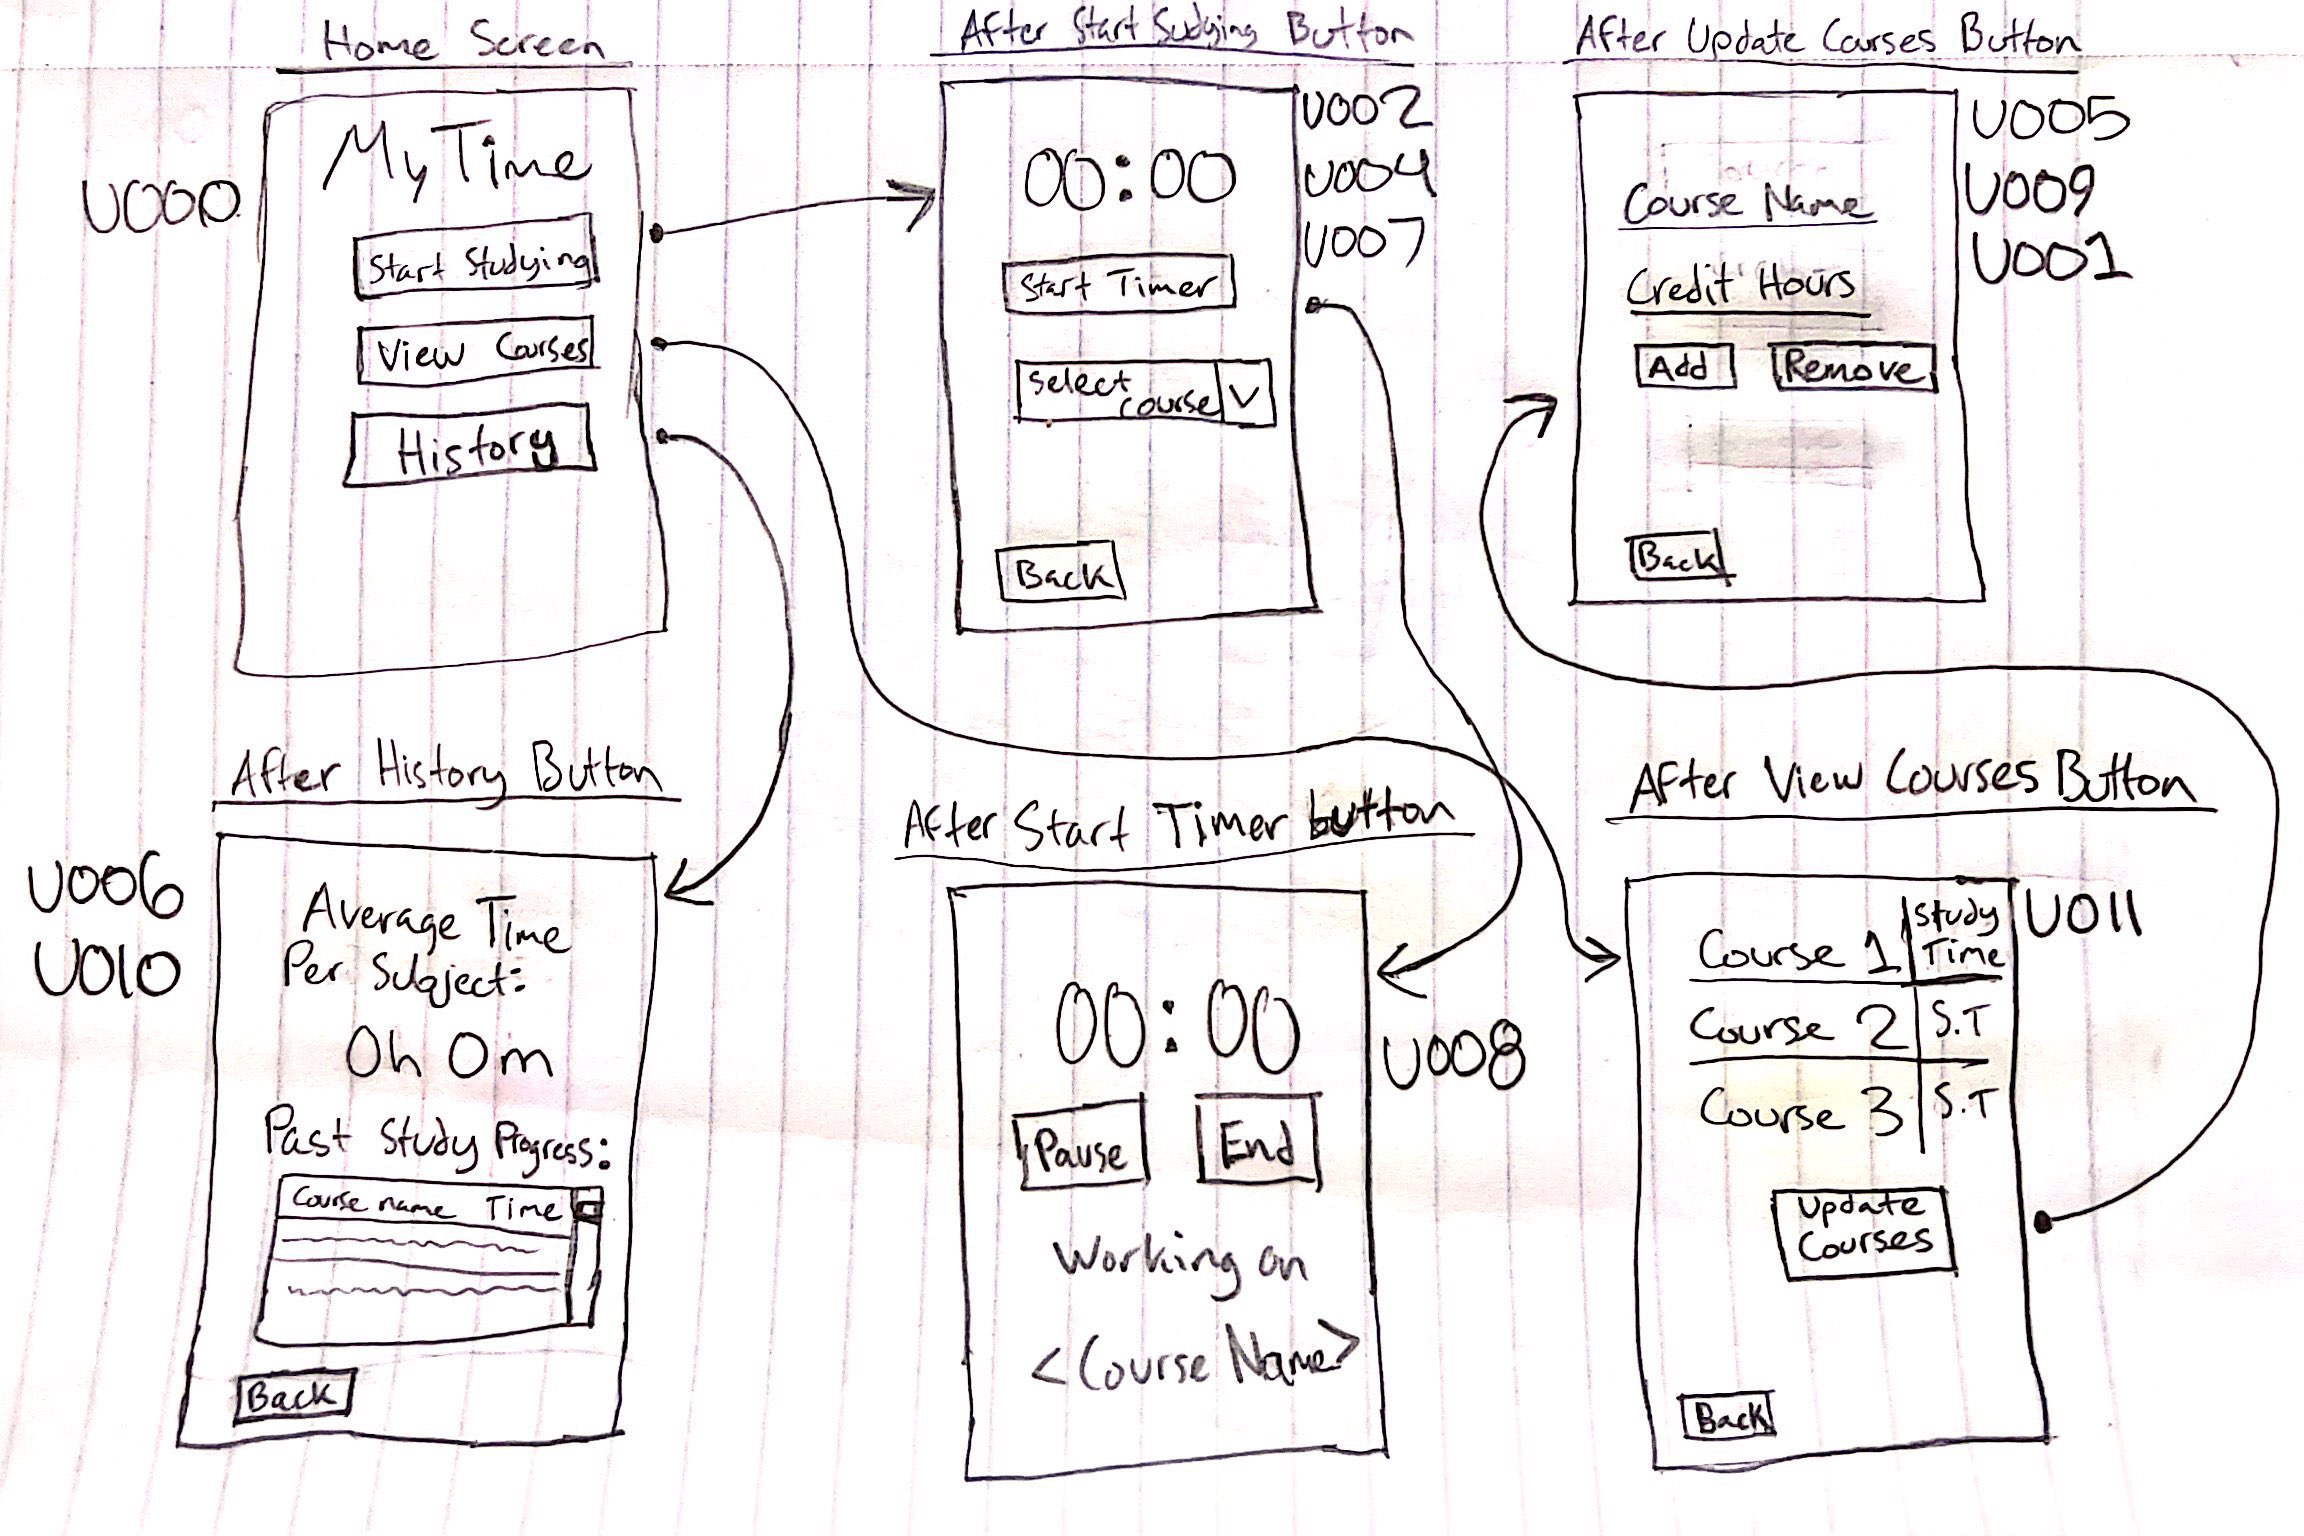 Home Screen
U000
My Time
Start Studying
View Courses
History
After Start Sudying Button
U002
U004
U007
00:00
Start Timer
Select
course V
Back
After Update Courses Button
U005
U009
U001
Course Name
Credit Hours
Add Remove
Back
After History Button
U006
U010
Average Time
Per Subject:
0h 0m
Past Study Progress:
Course name Time
Back
After Start Timer button
00:00
U008
Pause End
Working on
<Course Name>
After View Courses Button
U011
Course 1 Study
Time
Course 2 S.T
Course 3 S.T
Update
Courses
Back